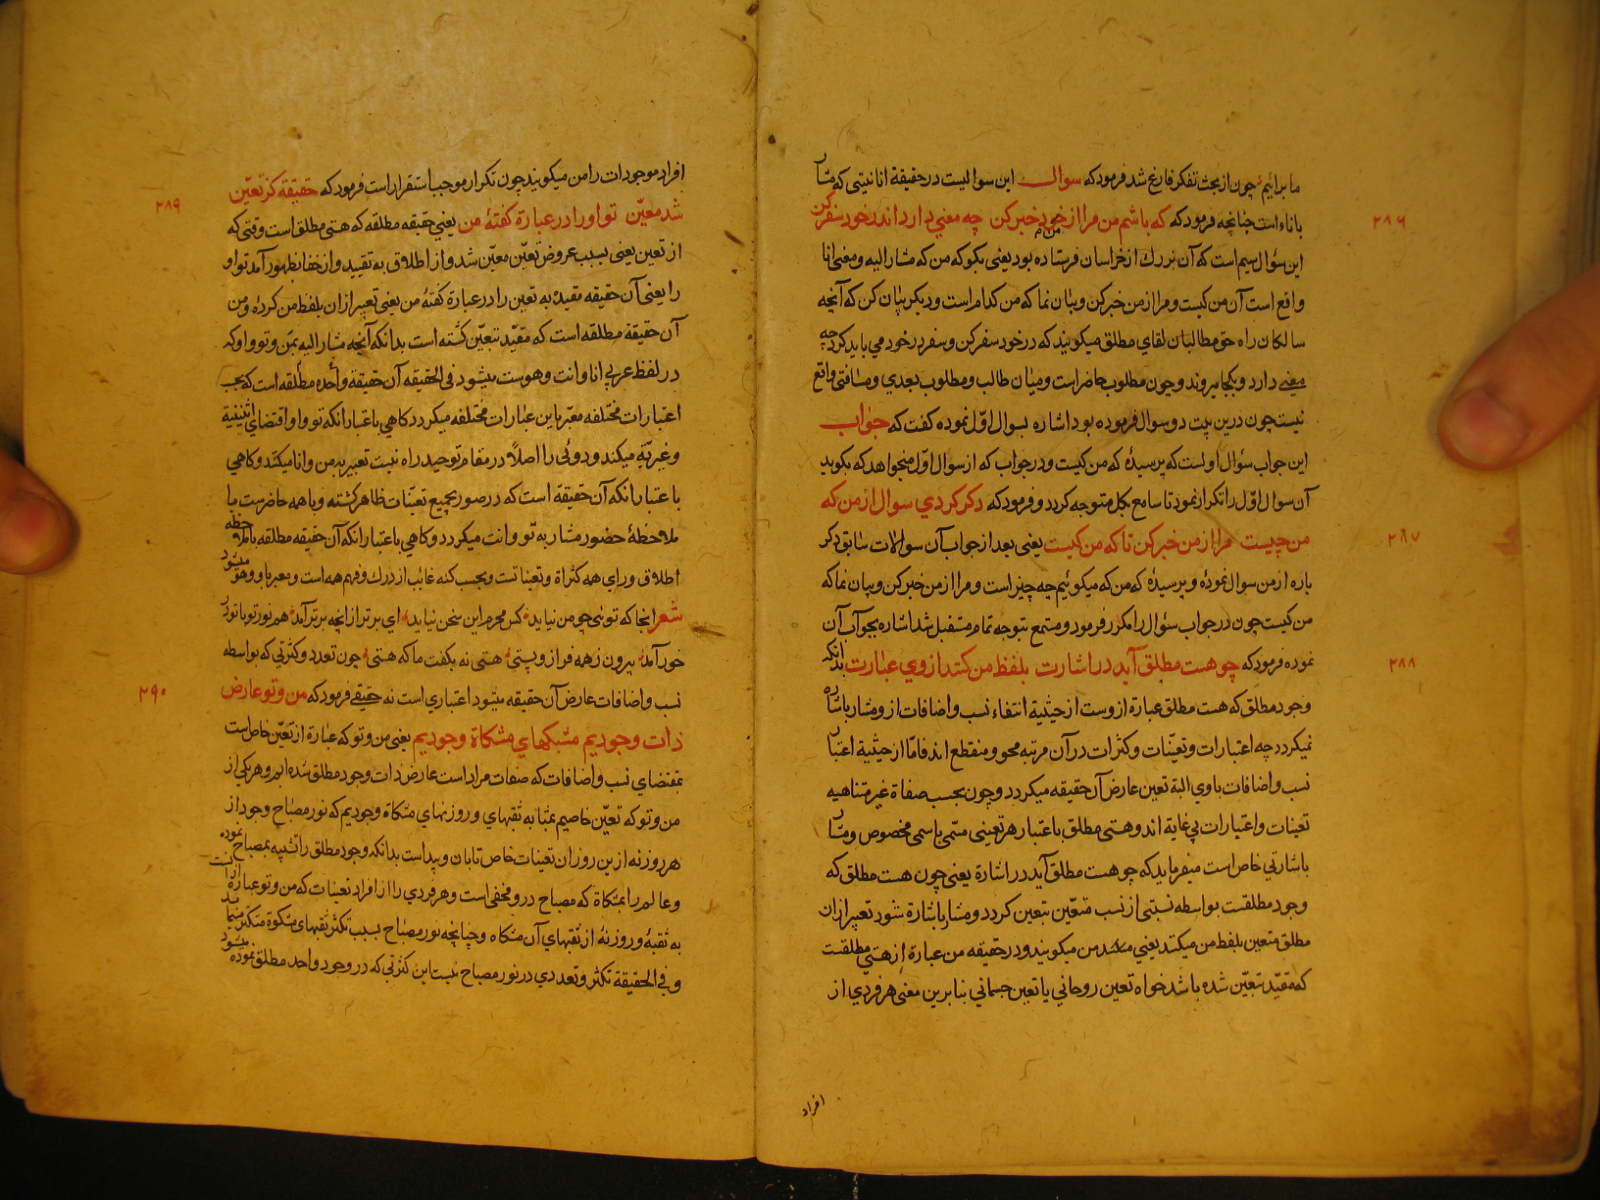 ما برائیم چون از بحث تفکر فارغ شد فرمود که سوال این سوالیست در حقیقة انانیتی که مشار
باناء است چنانچه فرمود که که باشم من مرا از خود خبر کن چه معنی دارد اندر خود سفر کن
۲۸۶
این سؤال سیم است که آن بزرك از خراسان فرستاده بود یعنی بگو که من که مشار الیه و معنی انا
واقع است آن من کیست و مرا از من خبر کن و بیان نما که من کدام است و دیگر بیان کن که آنچه
سالکان راه حق مطالبان لقای مطلق میگویند که در خود سفر کن و سفر در خود می باید کرد چه
معنی دارد و بکجا میروند و چون مطلوب حاضر است و میان طالب و مطلوب بعدی و مسافتی واقع
نیست چون درین بیت دو سوال فرموده بود اشاره بسوال اوّل نموده گفت که جواب
این جواب سؤال اولست که پرسیدۀ که من کیست و در جواب که از سوال اوّل میخواهد که بگوید
آن سوال اوّل را تکرار نمود تا سامع بکل متوجه گردد و فرمود که دکر کردی سوال از من که
من چیست مرا از من خبر کن تا که من کیست یعنی بعد از جواب آن سوالات سابق دکر
۲۸۷
باره از من سوال نمودۀ و پرسیدۀ که من که میگوئیم چه چیز است و مرا از من خبر کن و بیان نما که
من کیست چون در جواب سؤال را مکرر فرمود و مستمع بتوجه تمام مستقبل شد اشاره بجواب آن
نموده فرمود که چو هست مطلق آید در اشارت بلفظ من کنند از وی عبارت بدانکه
۲۸۸
وجود مطلق که هست مطلق عبارة ازوست از حیثیة انتفاء نسب و اضافات ازو مشار باشاره
نمیگردد چه اعتبارات و تعیّنات و کثرات در آن مرتبه محو و منقطع اند فامّا از حیثیة اعتبار
نسب و اضافات با وی البتة تعین عارض آن حقیقه میگردد و چون بحسب صفاة غیر متناهیه
تعینات و اعتبارات بی غایة اند و هستی مطلق باعتبار هر تعینی مسمّی باسمی مخصوص و مشار
باشارتی خاص است میفرماید که چو هست مطلق آید در اشارة یعنی چون هست مطلق که
وجود مطلقست بواسطه نسبتی از نسب متعّین بتعین گردد و مشار باشارة شود تعبیر ازان
مطلق متعین بلفظ من میکنند یعنی من میگویند و در حقیقه من عبارة از هستی مطلقست
که مقیّد بتعیّن شده باشد خواه تعین روحانی یا تعین جسمانی بنابرین معنی هر فردی از
افراد
افراد موجودات را من میگویند چون تکرار موجب استقرار است فرمود که حقیقة کز تعیّن
شد معیّن تو او را در عبارة گفتۀ من یعنی حقیقه مطلقه که هستی مطلق است وقتی که
۲۸۹
از تعین یعنی بسبب عروض تعیّن معیّن شد و از اطلاق به تقیید و از خفا بظهور آمد تو او
را یعنی آن حقیقه مقیده به تعین را در عبارة گفتۀ من یعنی تعبیر ازان بلفظ من کردۀ و من
آن حقیقة مطلقه است که مقیّد بتعیّن گشته است بدانکه آنچه مشار الیه بمن و تو و او که
در لفظ عربی انا و انت و هوست میشود فی الحقیقه آن حقیقة واحده مطلقه است که بحسب
اعتبارات مختلفه معبّر باین عبارات مختلفه میگردد گاهی باعتبار انکه تو و او اقتضای اثنینیة
و غیریّة میکند و دوئی را اصلاً در مقام توحید راه نیست تعبیر بمن و انا میکنند و گاهی
باعتبار انکه آن حقیقة است که در صور جمیع تعینّات ظاهر گشته و با همه حاضرست با
ملاحظۀ حضور مشار به تو و انت میگردد و گاهی باعتبار انکه آن حقیقه مطلقه بملاحظه
اطلاق ورای همه کثراة و تعیناتست و بحسب کنه غایب از درك و فهم همه است و معبر باو و هو میشود
شعر انجا که توئی چو من نیاید کس محرم این سخن نیاید ای برتر ازانچه برتر آمد هم نور تو با تو در
خور آمد بیرون ز همه فراز و پستی هستی نه بگفت ما که هستی چون تعدد و کثرتی که بواسطه
نسب و اضافات عارض آن حقیقه میشود اعتباری است نه حقیقی فرمود که من و تو عارض
۲۹۰
ذات وجودیم مشبکهای مشکاة وجودیم یعنی من و تو که عبارة از تعیّن خاص است
بمقتضای نسب و اضافات که صفات مراد است عارض ذات وجود مطلق شده ایم و هر یکی از
من و تو که تعیّن خاصیم بمثابه ثقبهای و روزنهای مشکاة وجودیم که نور مصباح وجود از
هر روزنه ازین روزان تعینات خاص تابان و پیداست بدانکه وجود مطلق را تشبیه بمصباح نموده
و عالم را بمشکاة که مصباح درو مخفی است و هر فردی را از افراد تعینات که من و تو عبارة از آنست
به ثقبۀ و روزنۀ از ثقبهای آن مشکاه و چنانچه نور مصباح بسبب تکثر ثقبهای مشکوة متکثر مینماید
و فی الحقیقة تکثر و تعددی در نور مصباح نیست این کثرتی که در وجود واحد مطلق نموده میشود